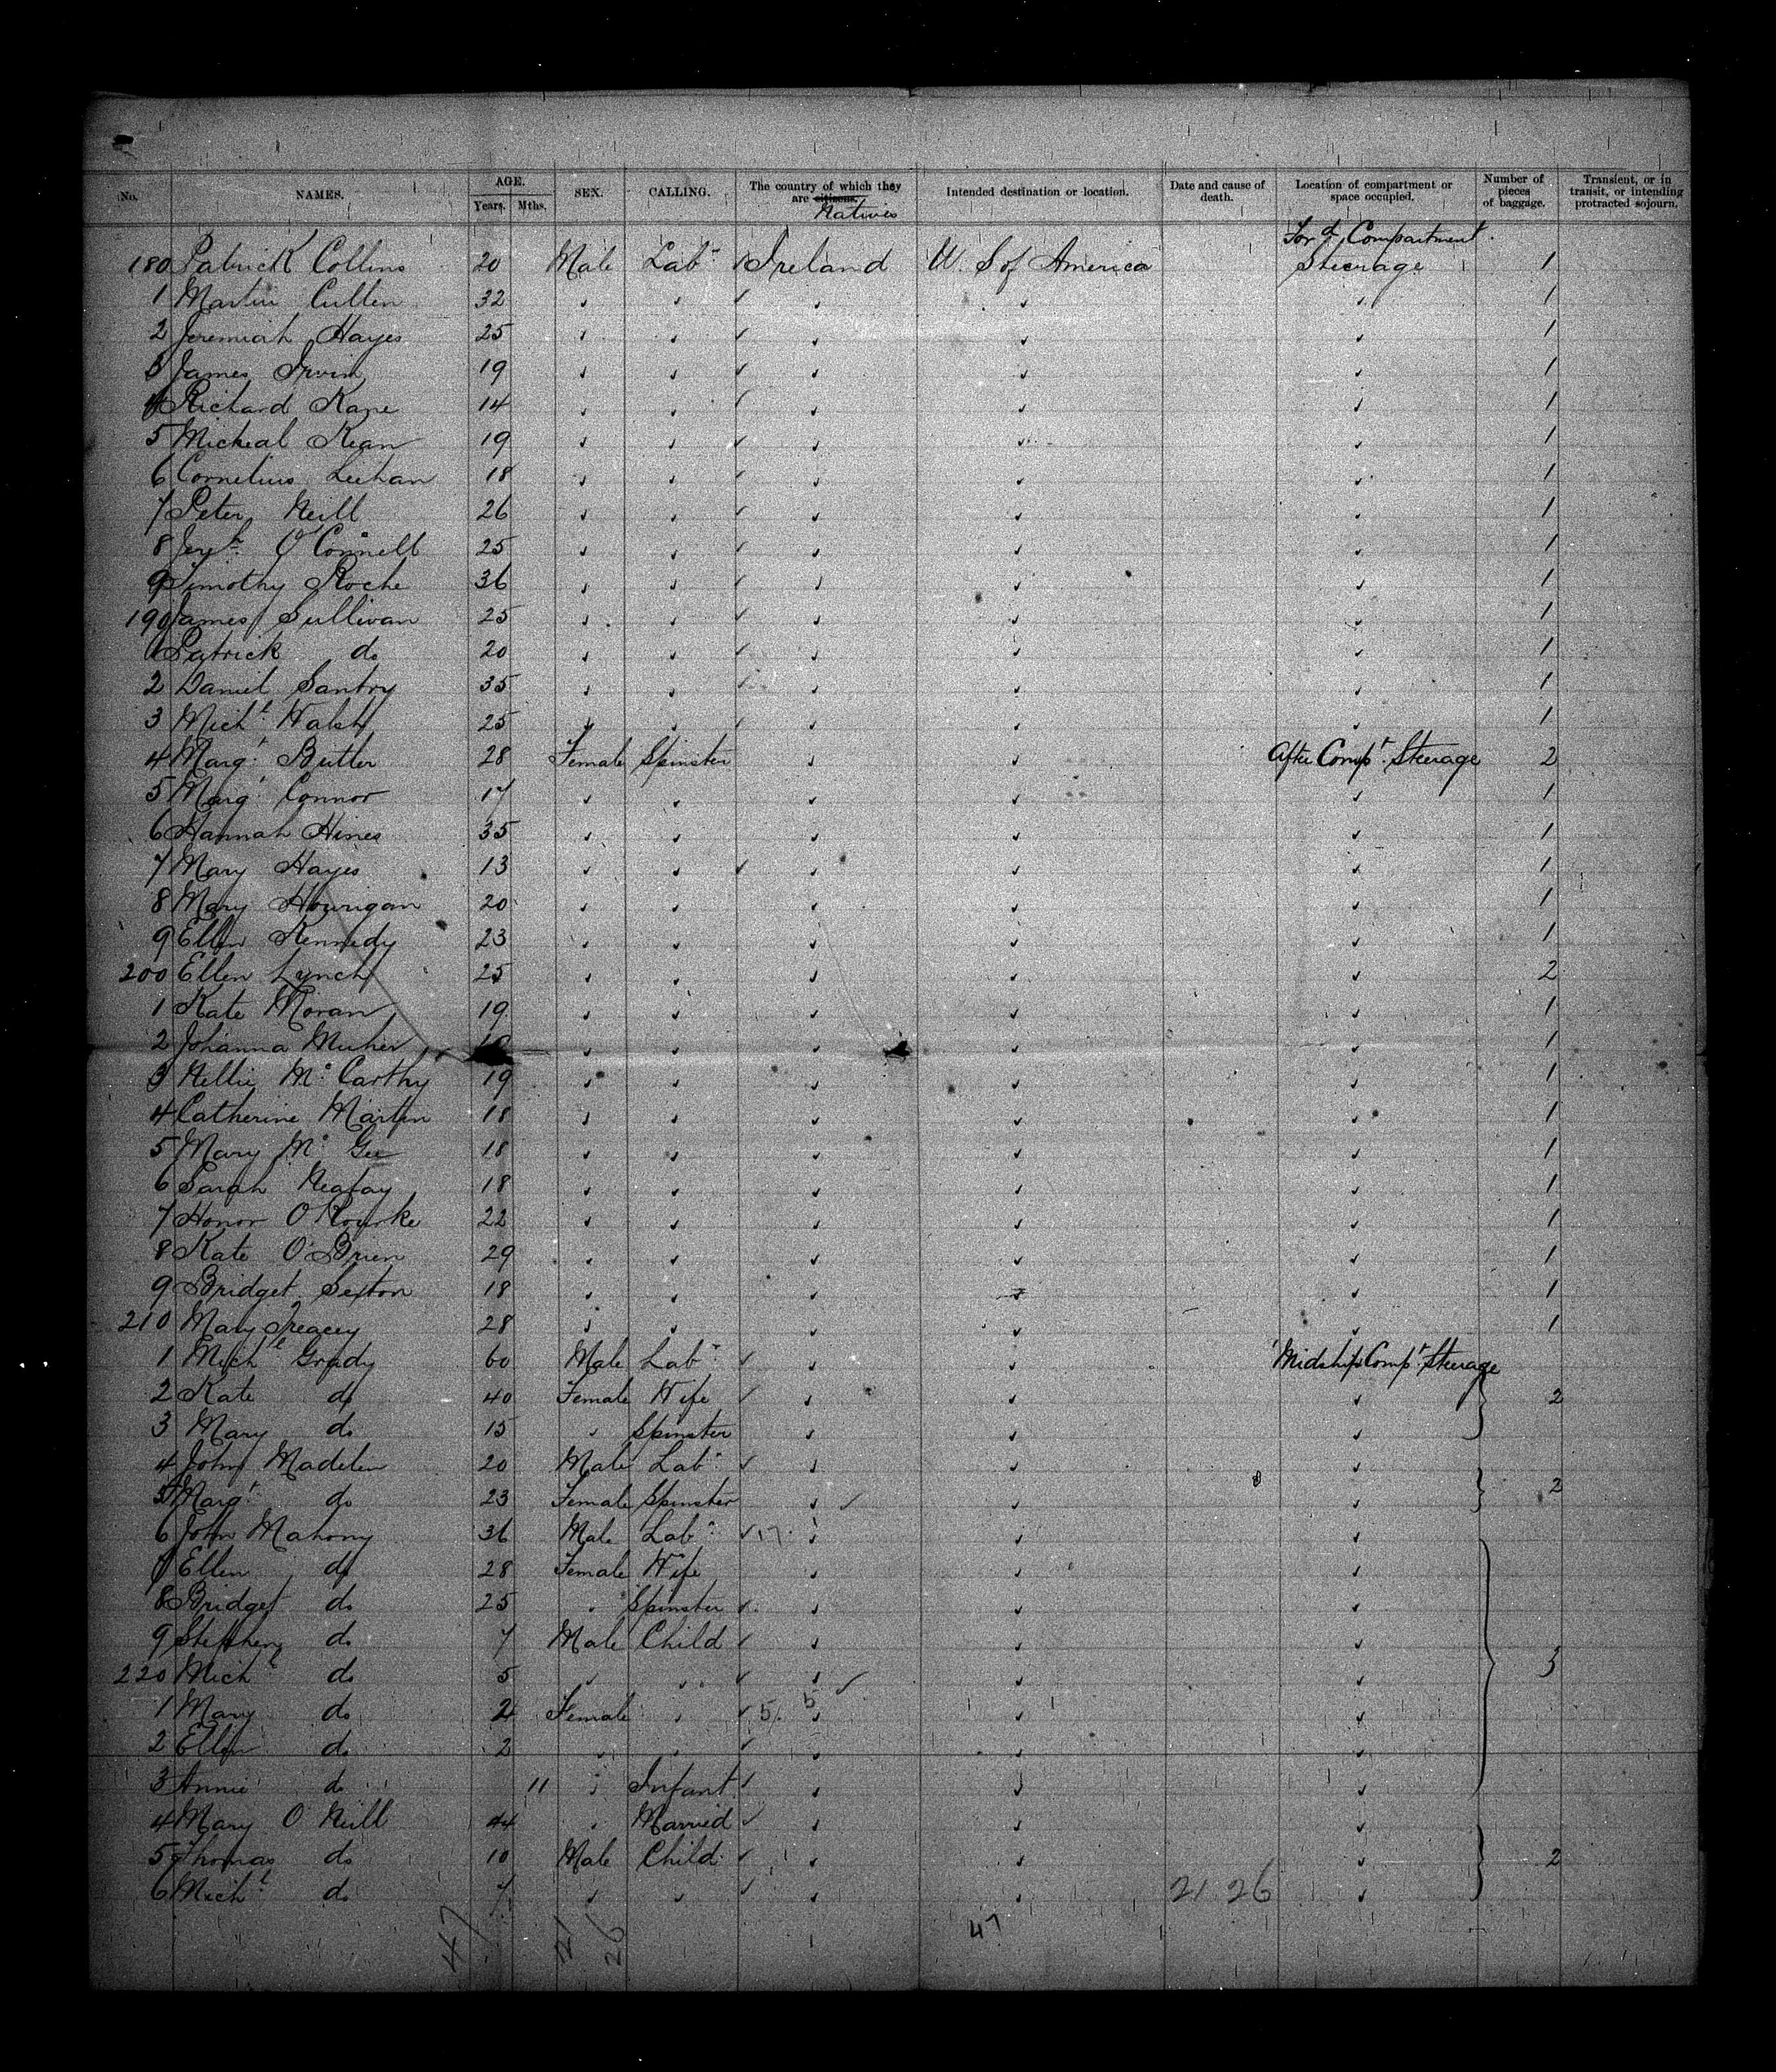 No. NAMES. AGE. Years. Mths. SEX. CALLING. The country of which they are citizens. Natives Intended destination or location. Date and cause of death. Location of compartment or space occupied. Number of pieces of baggage. Transient, or in transit, or intending protracted sojourn.
Ford. Compartment
180 Patrick Collins 20 Male Labr ✓ Ireland U. S of America Steerage 1
1 Martin Cullen 32 ✓ ✓ ✓ ✓ ✓ ✓ 1
2 Jeremiah Hayes 25 ✓ ✓ ✓ ✓ ✓ ✓ 1
3 James Irvin 19 ✓ ✓ ✓ ✓ ✓ ✓ 1
4 Richard Kane 14 ✓ ✓ ✓ ✓ ✓ ✓ 1
5 Micheal Kean 19 ✓ ✓ ✓ ✓ ✓ ✓ 1
6 Cornelius Leehan 18 ✓ ✓ ✓ ✓ ✓ ✓ 1
7 Peter Neill 26 ✓ ✓ ✓ ✓ ✓ ✓ 1
8 Jerh. O'Connell 25 ✓ ✓ ✓ ✓ ✓ ✓ 1
9 Timothy Roche 36 ✓ ✓ ✓ ✓ ✓ ✓ 1
190 James Sullivan 25 ✓ ✓ ✓ ✓ ✓ ✓ 1
1 Patrick do 20 ✓ ✓ ✓ ✓ ✓ ✓ 1
2 Daniel Santry 35 ✓ ✓ ✓ ✓ ✓ ✓ 1
3 Michl. Walsh 25 ✓ ✓ ✓ ✓ ✓ ✓ 1
4 Margt. Butler 28 Female Spinster ✓ ✓ After Compt. Steerage 2
5 Margt. Connor 17 ✓ ✓ ✓ ✓ ✓ 1
6 Hannah Hines 35 ✓ ✓ ✓ ✓ ✓ 1
7 Mary Hayes 13 ✓ ✓ ✓ ✓ ✓ ✓ 1
8 Mary Hourigan 20 ✓ ✓ ✓ ✓ ✓ 1
9 Ellen Kennedy 23 ✓ ✓ ✓ ✓ ✓ 1
200 Ellen Lynch 25 ✓ ✓ ✓ ✓ ✓ 2
1 Kate Moran 19 ✓ ✓ ✓ ✓ ✓ 1
2 Johanna Meher ✓ ✓ ✓ ✓ ✓ 1
3 Nellie Mc Carthy 19 ✓ ✓ ✓ ✓ ✓ 1
4 Catherine Martin 18 ✓ ✓ ✓ ✓ ✓ 1
5 Mary Mc Gee 18 ✓ ✓ ✓ ✓ ✓ 1
6 Sarah Neafay 18 ✓ ✓ ✓ ✓ ✓ 1
7 Honor O'Rourke 22 ✓ ✓ ✓ ✓ ✓ 1
8 Kate O'Brien 29 ✓ ✓ ✓ ✓ ✓ 1
9 Bridget Sexton 18 ✓ ✓ ✓ ✓ ✓ 1
210 Mary Treacey 28 ✓ ✓ ✓ ✓ ✓ 1
1 Michl Grady 60 Male Labr. ✓ ✓ ✓ Midship Compt. Steerage
2 Kate do 40 Female Wife ✓ ✓ ✓ ✓ 2
3 Mary do 15 ✓ Spinster ✓ ✓ ✓
4 John Madden 20 Male Labr. ✓ ✓ ✓ ✓
5 Margt. do 23 Female Spinster ✓ ✓ ✓ ✓ 2
6 John Mahony 36 Male Labr. ✓ 17 ✓ ✓ ✓
7 Ellen do 28 Female Wife ✓ ✓ ✓
8 Bridget do 25 ✓ Spinster ✓ ✓ ✓ ✓
9 Stephen do 7 Male Child ✓ ✓ ✓ ✓
220 Michl do 5 ✓ ✓ ✓ ✓ ✓ ✓ ✓ 3
1 Mary do 4 Female ✓ ✓ 5 5 ✓ ✓ ✓
2 Ellen do 2 ✓ ✓ ✓ ✓ ✓ ✓
3 Annie do 11 ✓ Infant ✓ ✓ ✓ ✓
4 Mary O'Neill 44 ✓ Married ✓ ✓ ✓ ✓
5 Thomas do 10 Male Child ✓ ✓ ✓ ✓ 2
6 Michl. do 7 ✓ ✓ ✓ ✓ ✓ 21 26 ✓
47 21 26 47